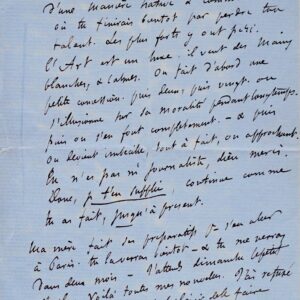 d'une manière
où tu finirais bientôt par perdre ton
talent. Les plus forts y ont péri.
l'Art est un luxe ; il veut des Mains
blanches, & calmes. On fait d'abord une
petite concession. puis deux, puis vingt. on
s'illusionne sur sa moralité pendant longtemps.
puis on s'en fout complètement. – & puis
on devient imbécile, tout à fait, ou approchant.
Tu n'es pas né journaliste, dieu merci.
Donc, je t'en supplie, continue comme
tu as fait, jusqu'à présent.
Ma mère fait des préparatifs p. s'en aller
à Paris. tu la verras bientôt – & tu me verras
dans deux mois – J'attends dimanche
Voilà toutes mes nouvelles. J'ai refusé
de faire